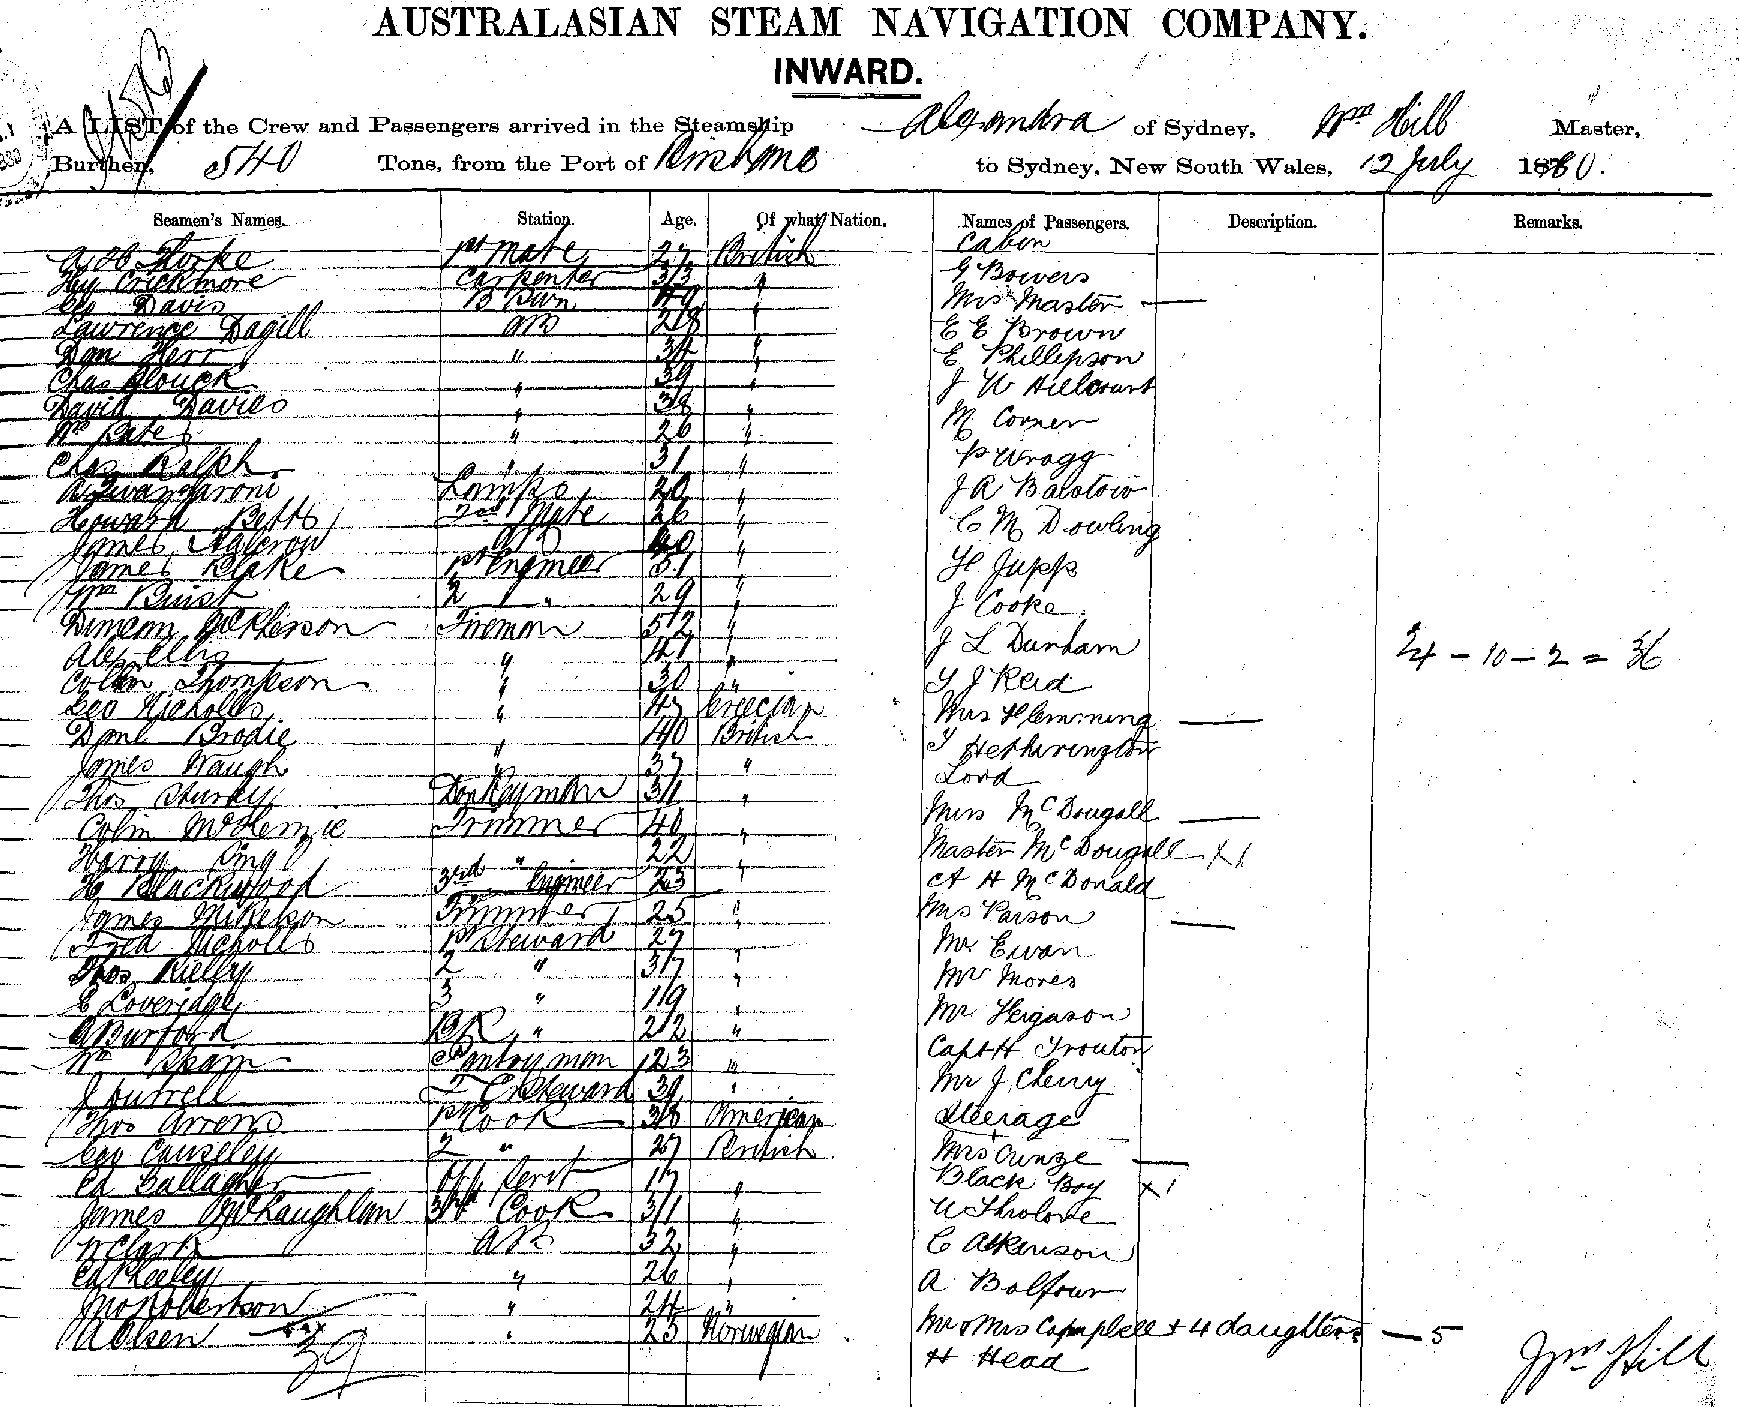 AUSTRALASIAN STEAM NAVIGATION COMPANY.
INWARD.
A LIST of the Crew and Passengers arrived in the Steamship Alexandra of Sydney, Wm Hill Master,
Burthen, 540 Tons, from the Port of Brisbane to Sydney, New South Wales, 12 July 1880.
Seamen's Names. Station. Age. Of what Nation. Names of Passengers. Description. Remarks.
Cabin
A B Thorpe 1st Mate 27 British
Hy Crickmore Carpenter 33 "
G Bowers
Geo Davis 49 "
Mrs Master —
Lawrence Dagill AB 28 "
E E Brown
Dan Kerr " 34 "
E Phillipson
Chas Plouck " 39 "
J W Hillcourt
David Davies " 38 "
M Corner
Wm Bates " 26 "
Chas Ralph " 31 "
P Wragg
Lamps 20 "
J A Barstow
Howard Betts 2nd Mate 26 "
C M Dowling
James AB 40 "
James Blake 1st Engineer 51 "
H Jupp
Wm Buist 2 " 29 "
J Cooke
Duncan McPherson Fireman 52 "
Alex Ellis " 41 "
J L Dunham
24 - 10 - 2 = 36
Colin Thompson " 30 "
T J Reid
Geo Nicholls " 47 Grecian
Mrs Flemming —
Danl Brodie " 40 British
T Hetherington
James Waugh " 37 "
Lord
Thos Sturdy Donkeyman 31 "
Miss McDougall —
Colin McKenzie Trimmer 40 "
Harry King " 22 "
Master McDougall x 1
H Blackwood 3rd Engineer 23
A H McDonald
James Mikelson Trimmer 25 "
Mrs Parson —
Fred Nicholls 1st Steward 27 "
Mr Ewan
Thos Kielly 2 " 37 "
Mr Mores
E Loveridge 3 " 19 "
Mr Fergason
A Burford BR " 22 "
Capt H Trouton
Wm Spam Pantryman 23 "
Mr J Cherry
J Durrell F C Steward 39 "
Thos Arrens 1st Cook 38 American
Steerage
Geo Causeley 2 " 27 British
Mrs Cunze —
Ed Gallagher Off Servt 17 "
Black Boy x 1
James McLaughlan 3rd Cook 31 "
W Throlove
W Clark AB 32 "
C Atkinson
Ed Keeley " 26 "
A Balfour
Jno Robertson " 24 "
A Olsen " 25 Norwegian
Mr & Mrs Campbell + 4 daughters — 5
39
H Head
Wm Hill